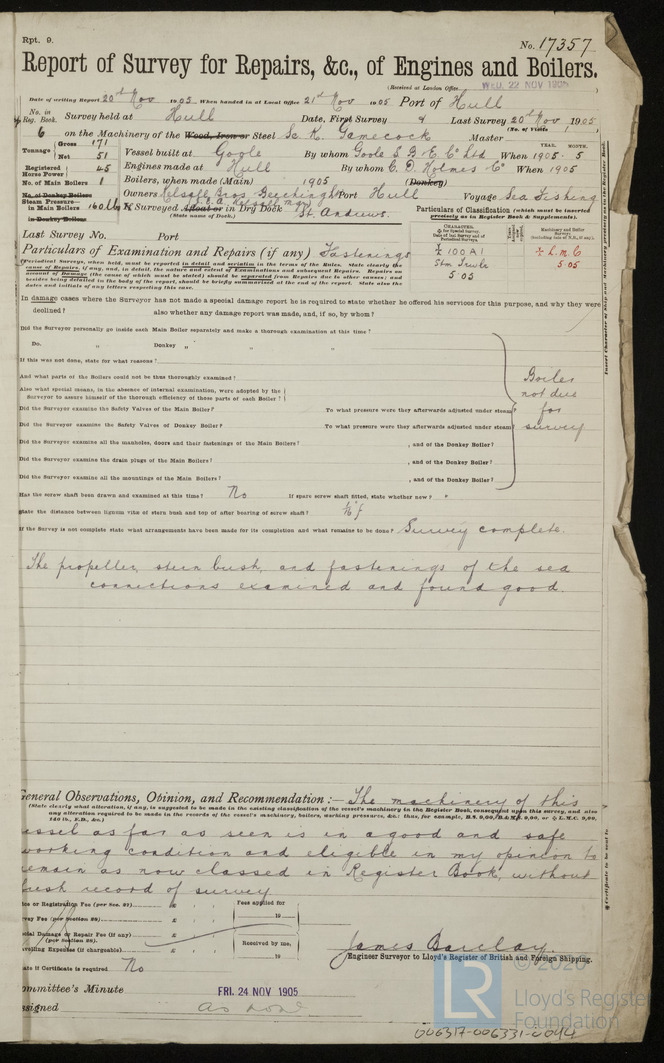 Rpt. 9.
No. 17357
Report of Survey for Repairs, &c., of Engines and Boilers.
(Received at London Office WED. 22 NOV 1905
Date of writing Report 20th Nov 1905 When handed in at Local Office 21st Nov 1905 Port of Hull
No. in Reg. Book. Survey held at Hull Date, First Survey Last Survey 20th Nov 1905
(No. of Visits 1)
6 on the Machinery of the Wood, Iron or Steel Sc K. Gamecock Master
Tonnage Gross 171 Net 51 Vessel built at Goole By whom Goole S. B & E. Co Ltd When 1905 - 5
YEAR. MONTH.
Registered Horse Power 45 Engines made at Hull By whom C. D. Holmes & Co When 1905
No. of Main Boilers 1 Boilers, when made (Main) 1905 (Donkey)
No. of Donkey Boilers Owners Kelsall Bros & Beeching Ld Port Hull Voyage Sea Fishing
Steam Pressure in Main Boilers 160 lbs If Surveyed Afloat or in Dry Dock St. Andrews.
in Donkey Boilers (State name of Dock.)
Particulars of Classification (which must be inserted precisely as in Register Book & Supplements).
Last Survey No. Port
CHARACTER.
Particulars of Examination and Repairs (if any) Fastenings
✠ 100 A1
Stm Trwlr
5.05
✠ L.M.C
5.05
(Periodical Surveys, when held, must be reported in detail and seriatim in the terms of the Rules. State clearly the
cause of Repairs, if any, and, in detail, the nature and extent of Examinations and subsequent Repairs. Repairs on
account of Damage (the cause of which must be stated) should be separated from Repairs due to other causes; and
besides being detailed in the body of the report, should be briefly summarised at the end of the report. State also the
dates and initials of any letters respecting this case.
In damage cases where the Surveyor has not made a special damage report he is required to state whether he offered his services for this purpose, and why they were
declined? also whether any damage report was made, and, if so, by whom?
Did the Surveyor personally go inside each Main Boiler separately and make a thorough examination at this time?
Do. „ Donkey „ „ „
If this was not done, state for what reasons?
And what parts of the Boilers could not be thus thoroughly examined?
Also what special means, in the absence of internal examination, were adopted by the
Surveyor to assure himself of the thorough efficiency of those parts of each Boiler?
Boiler
not due
for
survey
Did the Surveyor examine the Safety Valves of the Main Boiler? To what pressure were they afterwards adjusted under steam?
Did the Surveyor examine the Safety Valves of Donkey Boiler? To what pressure were they afterwards adjusted under steam?
Did the Surveyor examine all the manholes, doors and their fastenings of the Main Boilers? , and of the Donkey Boiler?
Did the Surveyor examine the drain plugs of the Main Boilers? , and of the Donkey Boiler?
Did the Surveyor examine all the mountings of the Main Boilers? , and of the Donkey Boiler?
Has the screw shaft been drawn and examined at this time? No If spare screw shaft fitted, state whether new?
State the distance between lignum vitæ of stern bush and top of after bearing of screw shaft?
If the Survey is not complete state what arrangements have been made for its completion and what remains to be done? Survey complete.
The propeller, stern bush, and fastenings of the sea
connections examined and found good.
General Observations, Opinion, and Recommendation :— The machinery of this
(State clearly what alteration, if any, is suggested to be made in the existing classification of the vessel's machinery in the Register Book, consequent upon this survey, and also
any alteration required to be made in the records of the vessel's machinery, boilers, working pressures, &c.: thus, for example, B.S. 9,00, B.&M.S. 9,00, or ✠ L.M.C. 9,00,
140 lb., F.D., &c.)
essel as far as seen is in a good and safe
working condition and eligible in my opinion to
remain as now classed in Register Book, without
fresh record of survey
or Registration Fee (per Sec. 27) £ Fees applied for
Survey Fee (per Section 28) £ 19
Special Damage or Repair Fee (if any) £
(per Section 28). Received by me,
Travelling Expenses (if chargeable) £ 19
James Barclay.
Engineer Surveyor to Lloyd's Register of British and Foreign Shipping.
State if Certificate is required No
Committee's Minute FRI. 24 NOV 1905
Assigned as now
© 2020
LR
Lloyd's Register
Foundation
006317-006331-0044